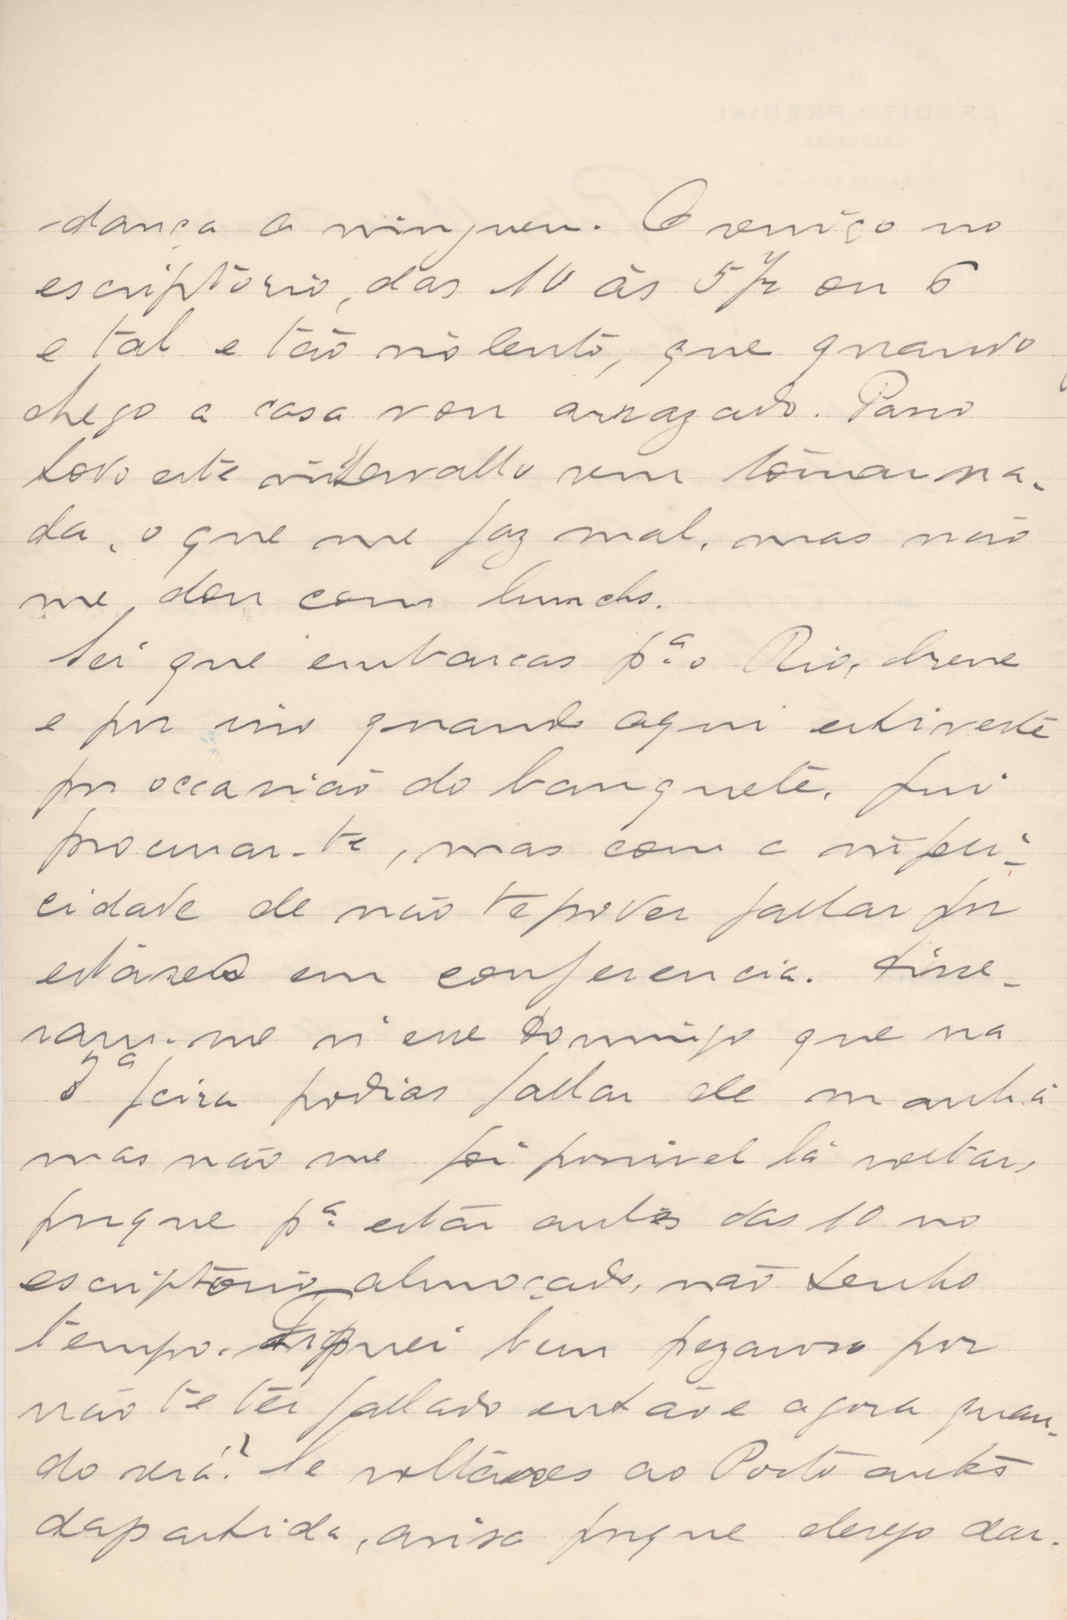 dança a ninguem. O serviço no
escriptório, das 10 ás 5 1/2 ou 6
e tal e tão violento, que quando
chego a casa vou arrazado. Passo
todo este intervallo sem tomar na-
da, o que me faz mal, mas não
me dou com lunchs.
Sei que embarcas pª o Rio, breve
e por isso quando aqui estiveste
por occasião do banquete, fui
procurar-te, mas com a infeli-
cidade de não te poder fallar por
estáres em conferencia. Disse-
ram-me n'esse Domingo que na
2ª feira podias fallar de manhã
mas não me foi possivel lá voltar,
porque pª estár antes das 10 no
escriptório almoçado, não tenho
tempo. Fiquei bem pezaroso por
não te têr fallado então e agora quan-
do será? Se voltares ao Porto antes
da partida, avisa porque desejo dar-